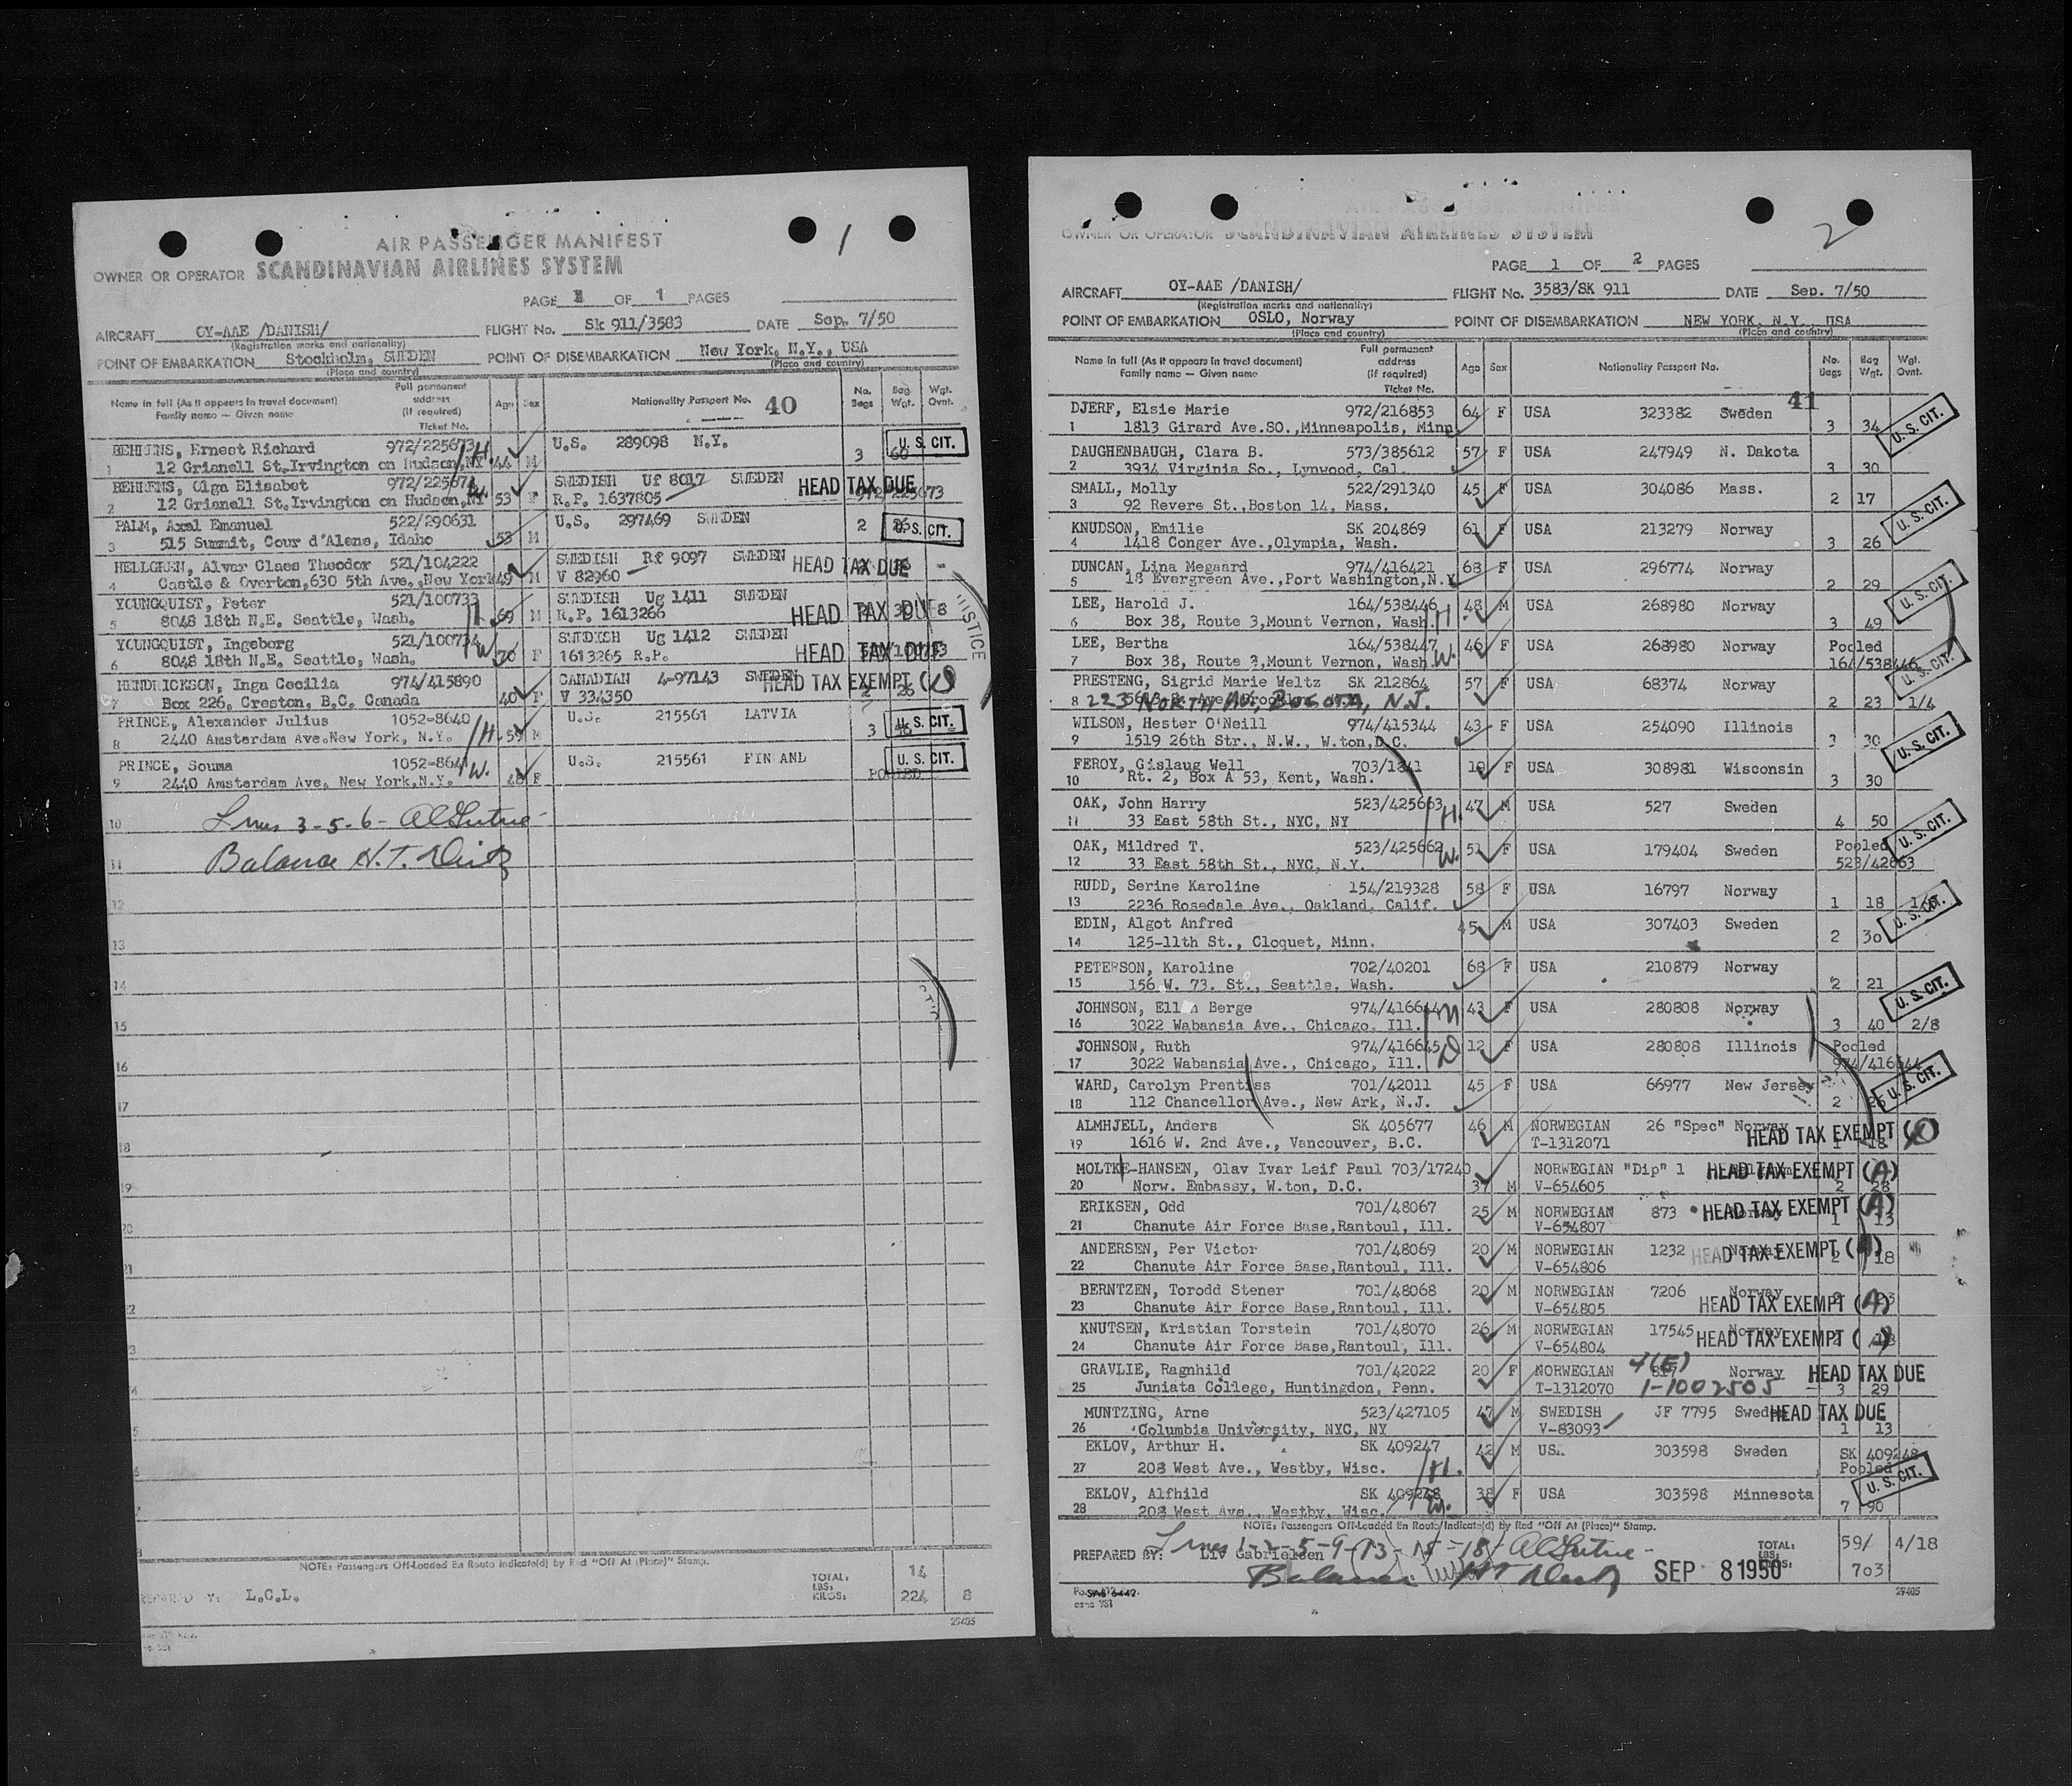 1
AIR PASSENGER MANIFEST
OWNER OR OPERATOR SCANDINAVIAN AIRLINES SYSTEM
PAGE 1 OF 1 PAGES
AIRCRAFT OY-AAE /DANISH/ FLIGHT No. Sk 911/3583 DATE Sep. 7/50
(Registration marks and nationality)
POINT OF EMBARKATION Stockholm, SWEDEN POINT OF DISEMBARKATION New York, N.Y., USA
(Place and country) (Place and country)
Name in full (As it appears in travel document) Family name — Given name
Full permanent address (if required) Ticket No.
Age Sex Nationality Passport No. 40 No. Bags Bag Wgt. Wgt. Ovnt.
BEHRENS, Ernest Richard 972/225673 H. 44 M U.S. 289098 N.Y. 3 60 U.S. CIT.
1 12 Grianell St.Irvington on Hudson,NY
BEHRENS, Olga Elisabet 972/225674 W. 53 F SWEDISH Uf 8017 SWEDEN HEAD TAX DUE
2 12 Grianell St.Irvington on Hudson,NY R.P. 1637805 972/225673
PALM, Axel Emanuel 522/290631 53 M U.S. 297469 SWEDEN 2 26 U.S. CIT.
3 515 Summit, Cour d'Alene, Idaho
HELLGREN, Alvar Claes Theodor 521/104222 49 M SWEDISH Rf 9097 SWEDEN HEAD TAX DUE -
4 Castle & Overton,630 5th Ave.,New York V 82960
YOUNGQUIST, Peter 521/100733 H 69 M SWEDISH Ug 1411 SWEDEN HEAD TAX DUE 8
5 8048 18th N.E. Seattle, Wash. R.P. 1613266
YOUNGQUIST, Ingeborg 521/100734 W. 70 F SWEDISH Ug 1412 SWEDEN HEAD TAX DUE
6 8048 18th N.E. Seattle, Wash. 1613265 R.P.
HENDRICKSON, Inga Cecilia 974/415890 40 F CANADIAN 4-97143 SWEDEN HEAD TAX EXEMPT 2 26
7 Box 226, Creston, B.C. Canada V 334350
PRINCE, Alexander Julius 1052-8640 H. 59 M U.S. 215561 LATVIA 3 U.S. CIT.
8 2440 Amsterdam Ave.New York, N.Y.
PRINCE, Souma 1052-8641 W. 48 F U.S. 215561 FINLANL POOLED U.S. CIT.
9 2440 Amsterdam Ave, New York,N.Y.
10 Lines 3-5-6-
11 Balance H.T.
12
13
14
15
16
17
18
19
20
21
22
NOTE: Passengers Off-Loaded En Route Indicate(d) by Red "Off At (Place)" Stamp.
PREPARED BY: L.C.L. TOTAL: LBS: KILOS: 14 224 8
29405
2
OWNER OR OPERATOR SCANDINAVIAN AIRLINES SYSTEM
PAGE 1 OF 2 PAGES
AIRCRAFT OY-AAE /DANISH/ FLIGHT No. 3583/SK 911 DATE Sep. 7/50
(Registration marks and nationality)
POINT OF EMBARKATION OSLO, Norway POINT OF DISEMBARKATION NEW YORK, N.Y., USA
(Place and country) (Place and country)
Name in full (As it appears in travel document) Family name — Given name
Full permanent address (if required) Ticket No.
Age Sex Nationality Passport No. No. Bags Bag Wgt. Wgt. Ovnt.
41
DJERF, Elsie Marie 972/216853 64 F USA 323382 Sweden 3 34 U.S. CIT.
1 1813 Girard Ave.SO.,Minneapolis, Minn
DAUGHENBAUGH, Clara B. 573/385612 57 F USA 247949 N. Dakota 3 30
2 3934 Virginia So., Lynwood, Cal.
SMALL, Molly 522/291340 45 F USA 304086 Mass. 2 17
3 92 Revere St.,Boston 14, Mass.
KNUDSON, Emilie SK 204869 61 F USA 213279 Norway 3 26 U.S. CIT.
4 1418 Conger Ave.,Olympia, Wash.
DUNCAN, Lina Megaard 974/416421 68 F USA 296774 Norway 2 29
5 18 Evergreen Ave.,Port Washington,N.Y
LEE, Harold J. 164/538446 H. 48 M USA 268980 Norway 3 49 U.S. CIT.
6 Box 38, Route 3,Mount Vernon, Wash.
LEE, Bertha 164/538447 W. 46 F USA 268980 Norway Pooled
7 Box 38, Route 3,Mount Vernon, Wash. 164/538446
PRESTENG, Sigrid Marie Weltz SK 212864 57 F USA 68374 Norway 2 23 1/4 U.S. CIT.
8 223 NORTH AV, BOGOTA, N.J.
WILSON, Hester O'Neill 974/415344 43 F USA 254090 Illinois 3 30 U.S. CIT.
9 1519 26th Str., N.W., W.ton,D.C.
FEROY, Gislaug Well 703/1841 19 F USA 308981 Wisconsin 3 30
10 Rt. 2, Box A 53, Kent, Wash.
OAK, John Harry 523/425663 H. 47 M USA 527 Sweden 4 50
11 33 East 58th St., NYC, NY
OAK, Mildred T. 523/425662 W. 51 F USA 179404 Sweden Pooled U.S. CIT.
12 33 East 58th St., NYC, N.Y. 523/42663
RUDD, Serine Karoline 154/219328 58 F USA 16797 Norway 1 18
13 2236 Rosedale Ave., Oakland, Calif.
EDIN, Algot Anfred 45 M USA 307403 Sweden 2 30 U.S. CIT.
14 125-11th St., Cloquet, Minn.
PETERSON, Karoline 702/40201 68 F USA 210879 Norway 2 21
15 156 W. 73. St., Seattle, Wash.
JOHNSON, Ellen Berge 974/416644 M 43 F USA 280808 Norway 3 40 2/8 U.S. CIT.
16 3022 Wabansia Ave., Chicago, Ill.
JOHNSON, Ruth 974/416645 D 12 F USA 280808 Illinois Pooled
17 3022 Wabansia Ave., Chicago, Ill. 974/416644
WARD, Carolyn Prentiss 701/42011 45 F USA 66977 New Jersey 2 U.S. CIT.
18 112 Chancellor Ave., New Ark, N.J.
ALMHJELL, Anders SK 405677 46 M NORWEGIAN 26 "Spec" Norway HEAD TAX EXEMPT
19 1616 W. 2nd Ave., Vancouver, B.C. T-1312071 1 18
MOLTKE-HANSEN, Olav Ivar Leif Paul 703/17240 NORWEGIAN "Dip" 1 HEAD TAX EXEMPT (A)
20 Norw. Embassy, W.ton, D.C. 37 M V-654605 2 28
ERIKSEN, Odd 701/48067 25 M NORWEGIAN 873 Norway HEAD TAX EXEMPT (A)
21 Chanute Air Force Base,Rantoul, Ill. V-654807 1 13
ANDERSEN, Per Victor 701/48069 20 M NORWEGIAN 1232 Norway HEAD TAX EXEMPT (A)
22 Chanute Air Force Base,Rantoul, Ill. V-654806 2 18
BERNTZEN, Torodd Stener 701/48068 20 M NORWEGIAN 7206 Norway
23 Chanute Air Force Base,Rantoul, Ill. V-654805 HEAD TAX EXEMPT (A)
KNUTSEN, Kristian Torstein 701/48070 26 M NORWEGIAN 17545 Norway HEAD TAX EXEMPT (A)
24 Chanute Air Force Base,Rantoul, Ill. V-654804
GRAVLIE, Ragnhild 701/42022 20 F NORWEGIAN 4(E) Norway HEAD TAX DUE
25 Juniata College, Huntingdon, Penn. T-1312070 1-1002505 3 29
MUNTZING, Arne 523/427105 47 M SWEDISH JF 7795 Sweden HEAD TAX DUE
26 Columbia University, NYC, NY V-83093 1 13
EKLOV, Arthur H. SK 409247 42 M USA 303598 Sweden SK 409248
27 208 West Ave., Westby, Wisc. H. Pooled
EKLOV, Alfhild SK 409248 38 F USA 303598 Minnesota U.S. CIT.
28 208 West Ave., Westby, Wisc. W. 7 90
NOTE: Passengers Off-Loaded En Route Indicate(d) by Red "Off At (Place)" Stamp.
Lines 1-2-5-9-13-15-18
PREPARED BY: Liv Gabrielsen TOTAL: LBS: KILOS: 59/ 703 4/18
Balance HT
SEP 8 1950
SAS 6442
29405